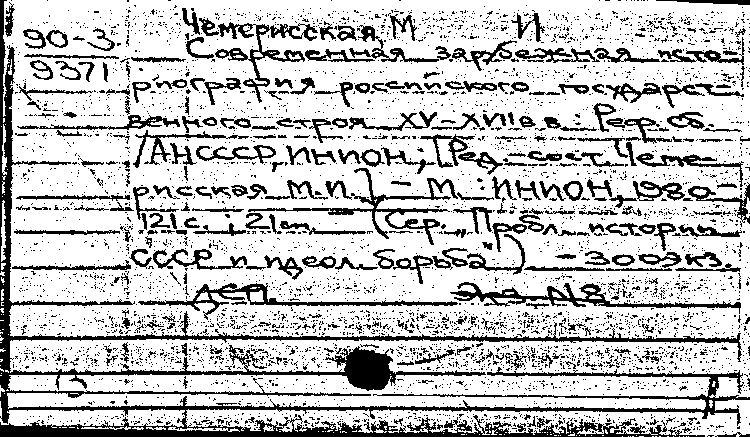 90-3.
9371
Чемерисская, М И
Современная зарубежная исто-
риография российского государст-
венного строя XV-XVIIв в.: Реф. сб.
/АН СССР, ИНИОН; [Ред.-сост. Чеме-
рисская М.И.] - М.: ИНИОН, 1980-
121 с.; 21 см. (Сер. „Пробл. истории
СССР и идеол. борьба") - 300 экз.
ДСП. Экз. N 8
13